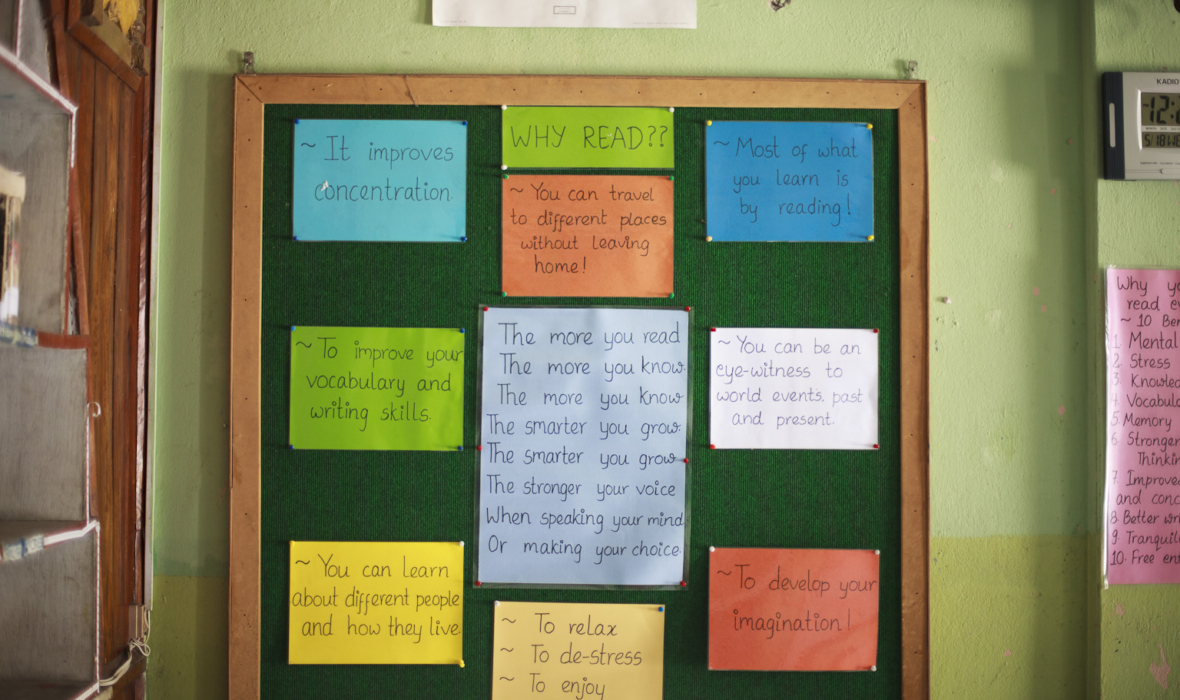 WHY READ??
~ It improves
concentration.
~ You can travel
to different places
without leaving
home!
~ Most of what
you learn is
by reading!
~ To improve your
vocabulary and
writing skills.
The more you read
The more you know.
The more you know
The smarter you grow.
The smarter you grow
The stronger your voice
When speaking your mind
Or making your choice.
~ You can be an
eye-witness to
world events, past
and present.
~ You can learn
about different people
and how they live.
~ To relax
~ To de-stress
~ To enjoy
~ To develop your
imagination!
KADIO
12:
Why
read
~ 10
1. Mental
2. Stress
3.
4.
5. Memory
6. Stronger
7.
and
8. Better
9.
10. Free